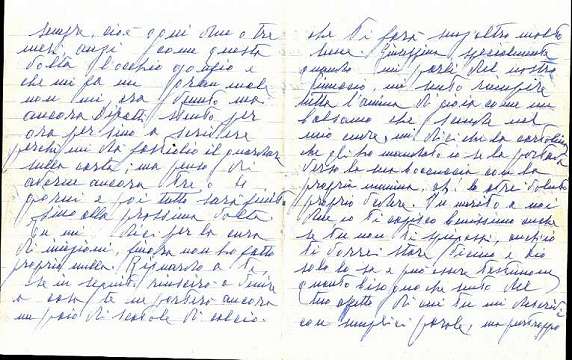 sempre, cioè ogni due o tre
mesi, anzi come questa
volta l'occhio gonfio e
che mi fa un gran male
non mi era venuto mai
ancora stento per
ora perfino a scrivere
perchè mi dà fastidio il guardar
sulla carta; ma penso di
averne ancora tre o
giorni e poi tutto sarà finito
fino alla prossima volta.
Tu mi dici per la cura
di iniezioni, finora non ho fatto
proprio nulla. Riguardo a te
se in seguito riuscirò a venire
a casa te ne porterò ancora
un paio di scatole di calcio.
che ti farà senz'altro molto
bene. Giuseppina specialmente
quando mi parli del nostro
mi sento riempire
tutta l'anima di gioia come un
balsamo che scende nel
mio cuore, mi dici che la cartolina
che gli ho mandato io se la portava
verso la sua boccuccia con la
propria manina, e le altre
proprio vedere. In merito a noi
due io ti capisco benissimo anche
se tu non ti spieghi, anch'io
ti vorrei stare vicino e Dio
solo lo sa e può essere testimone
quanto bisogno che sento del
tuo affetto di cui tu mi descrivi
con semplici parole, ma purtroppo